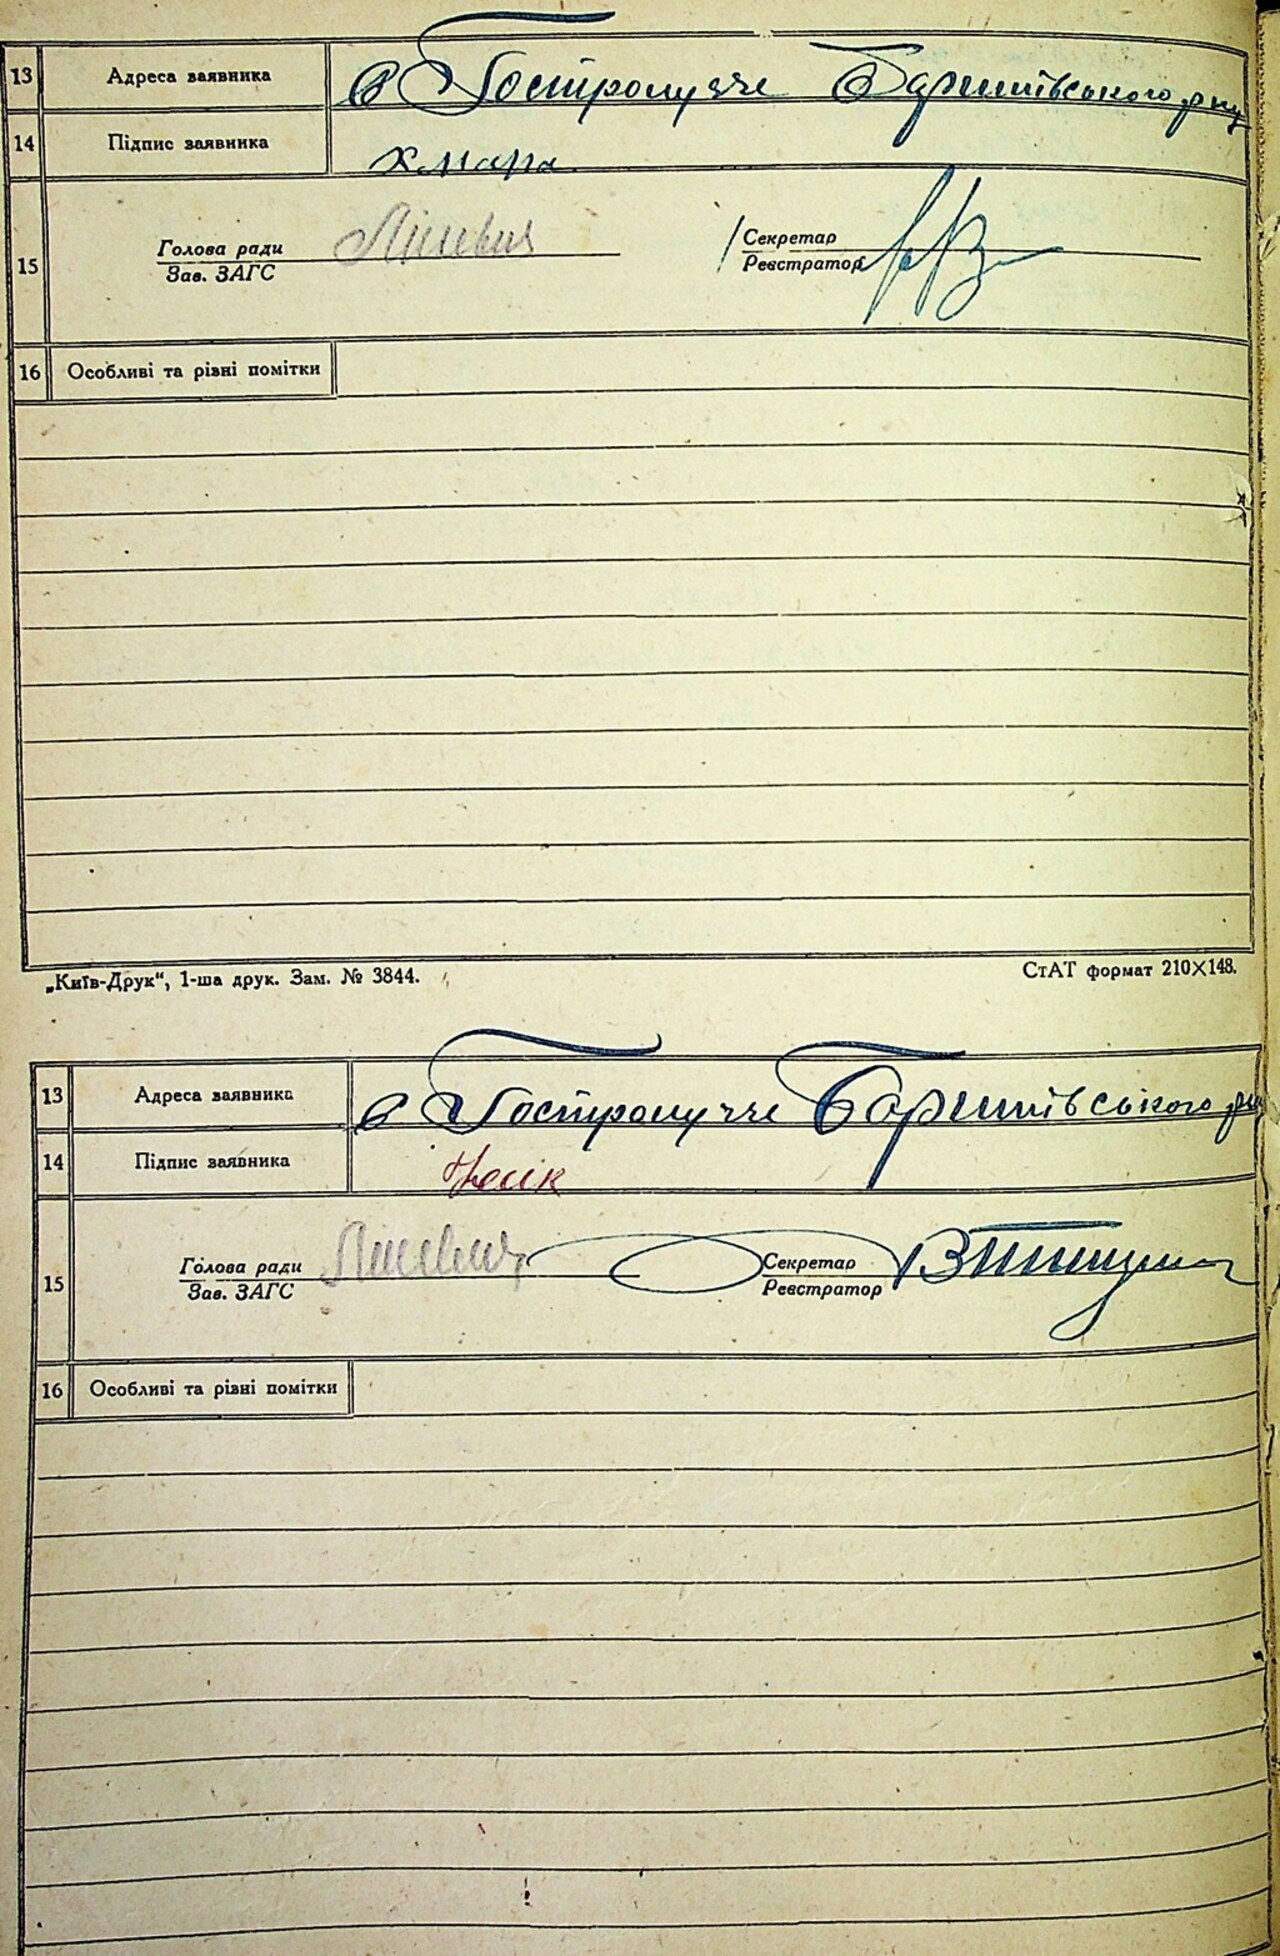 13 Адреса заявника в Гостролуччє Баришівського р-ну
14 Підпис заявника Хмара
15 Голова ради Секретар
Зав. ЗАГС Реєстратор
16 Особливі та різні помітки
„Київ-Друк“, 1-ша друк. Зам. № 3844. СтАТ формат 210×148.
13 Адреса заявника в Гостролуччє Баришівського р-ну
14 Підпис заявника
15 Голова ради Секретар
Зав. ЗАГС Реєстратор
16 Особливі та різні помітки